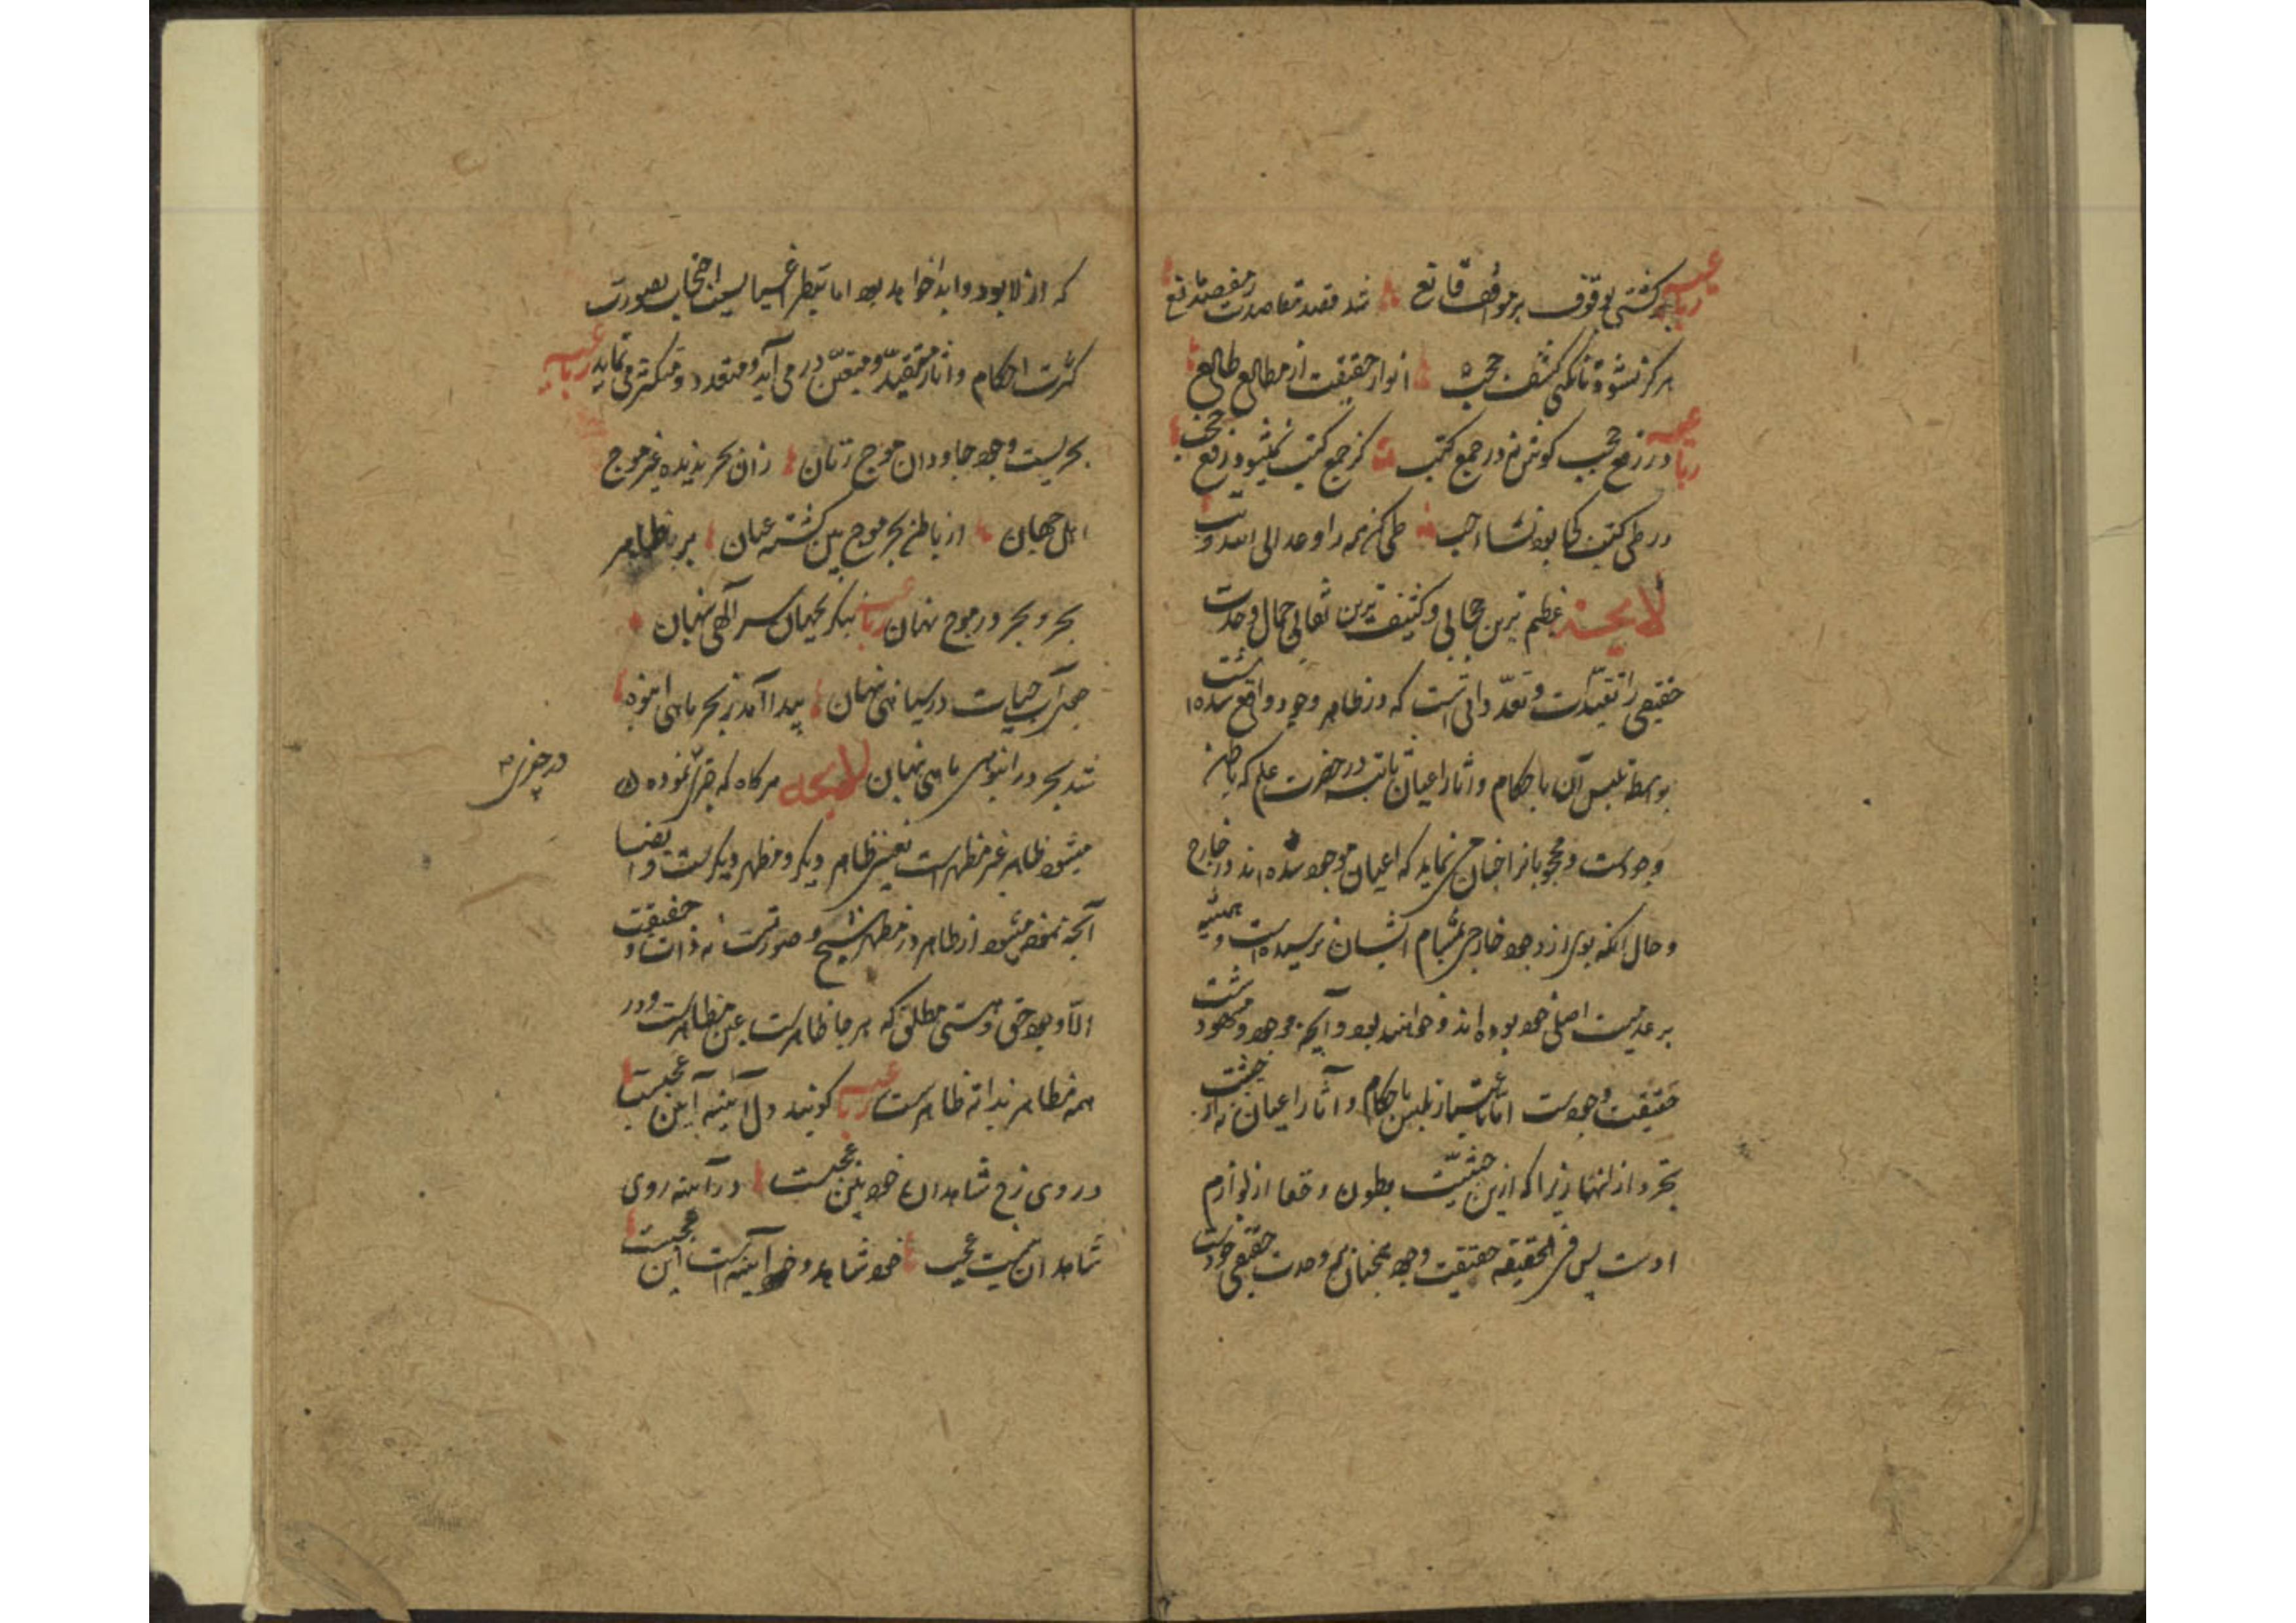 رباعیه گشتی بوقوف بر مواقف قانع شد قصد مقاصدت ز مقصد مانع
هرگز نشود تا نکنی کشف حجب انوار حقیقت از مطالع طالع
رباعیه در رفع حجب کوش نه در جمع کتب کز جمع کتب نمیشود رفع حجب
در طی کتب کجا بود نشاء حب طی کن همه را وعد الی الله وتب
لایحه عظیم ترین حجابی و کثیف ترین نقابی جمال وحدت
حقیقی را تقیدات و تعدداتی است که در ظاهر وجود واقع شده است
بواسطه تلبس آن باحکام و آثار اعیان ثابته در حضرت علم که باطن
وجودست و محجوبانرا چنان می نماید که اعیان موجود شده اند در خارج
و حال آنکه بوی از وجود خارجی بمشام ایشان نرسیده است و همیشه
بر عدمیت اصلی خود بوده اند و خواهند بود و آنچه موجود و مشهودست
حقیقت وجودست اما باعتبار تلبس باحکام و آثار اعیان نه از حیثیت
تجرد از آنها زیرا که ازین حیثیت بطون و خفا از لوازم
اوست پس فی الحقیقه حقیقت وجود همچنان بر وحدت حقیقی خودست
که ازلا بود و ابدا خواهد بود اما بنظر اغیار بسبب احتجاب بصورت
کثرت احکام و آثار متقید و متعین در می آید و متعدد و متکثر می نماید رباعیه
بحریست وجود جاودان موج زنان زان بحر ندیده غیر موج
اهل جهان از باطن بحر موج بین گشته عیان بر ظاهر
بحر و بحر در موج نهان رباعیه بنگر بجهان سر الهی پنهان
چون آب حیات در سیاهی پنهان پیدا آمد ز بحر ماهی انبوه
شد بحر در انبوهی ماهی پنهان لایحه هرگاه که چیزی نموده
در چیزی
میشود ظاهر غیر مظهرست یعنی ظاهر دیگر و مظهر دیگرست و ایضا
آنچه نموده میشود از ظاهر در مظهر شبح و صورتست نه ذات و حقیقت
الا وجود حق و هستی مطلق که هر جا ظاهرست عین مظاهرست و در
همه مظاهر بذاته ظاهرست رباعیه گویند دل آینه آیین عجبست
در وی رخ شاهدان خودبین عجبست در آینه روی
شاهدان نیست عجیب خود شاهد و خود آینه است این عجبست